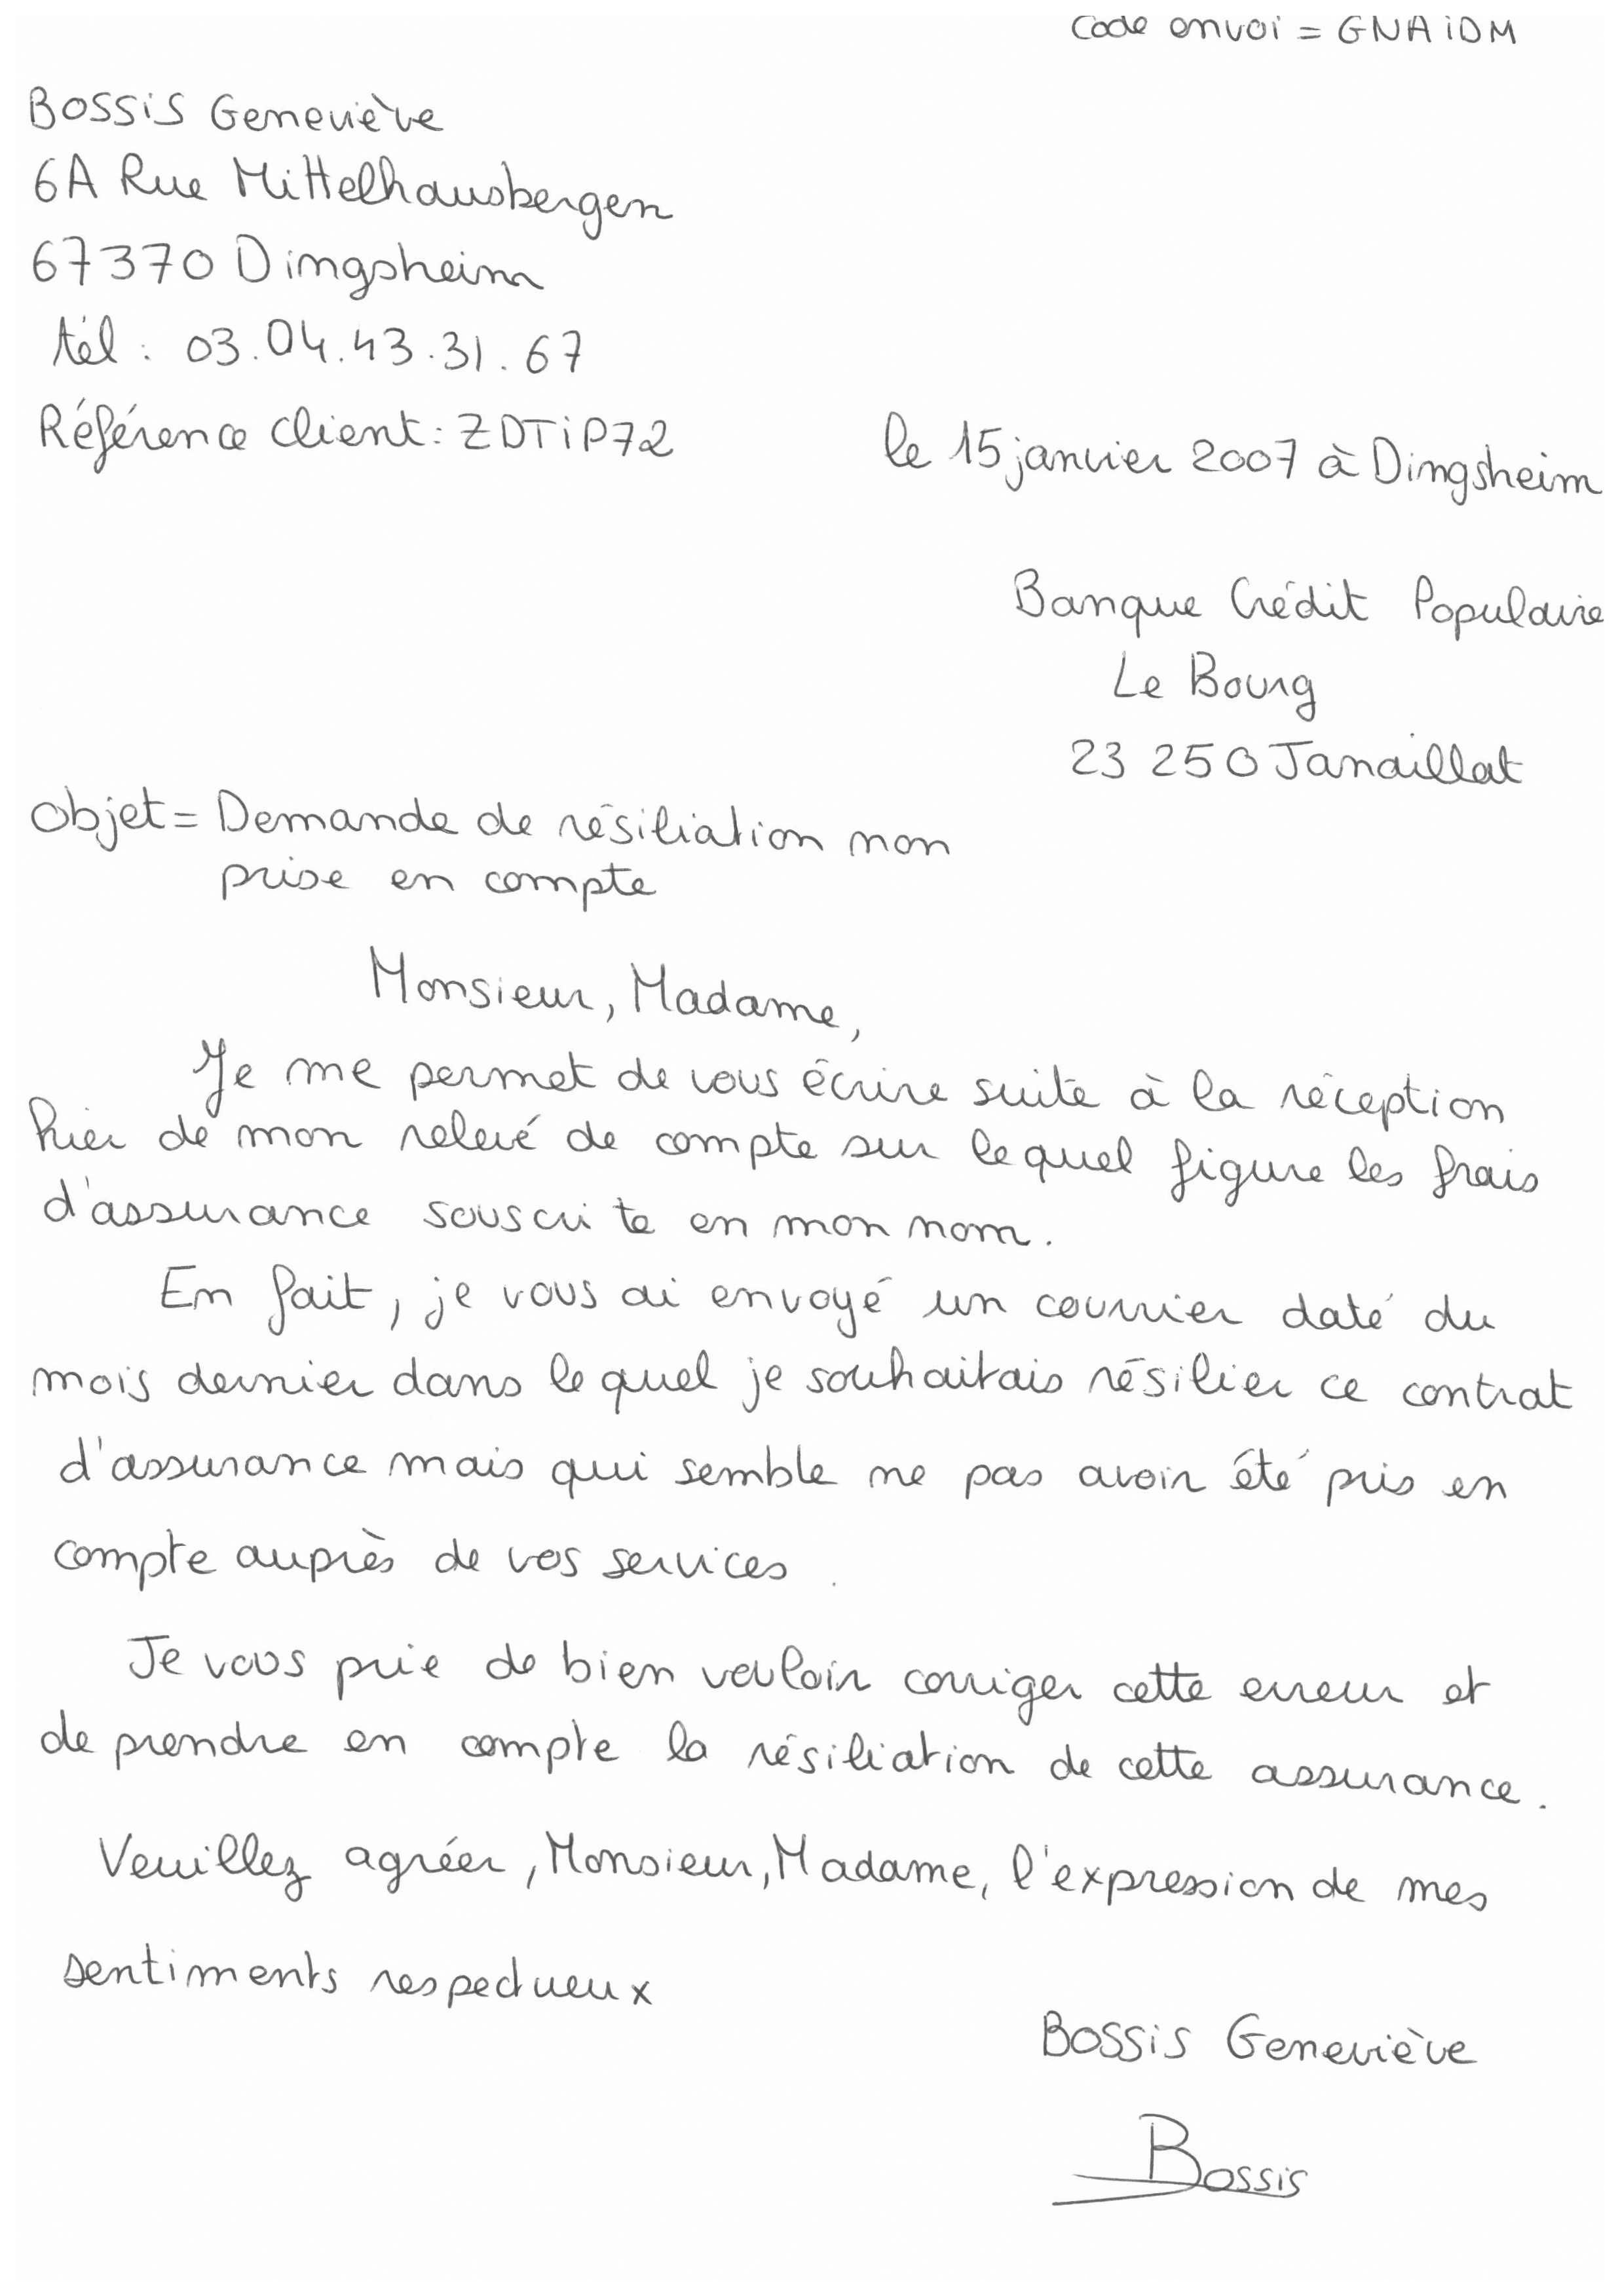 Code envoi = GNAiDM
BOSSiS Geneviève
6A Rue Mittelhausbergen
67370 Dingsheim
tél : 03.04.43.31.67
Référence client : ZDTiP72
le 15 janvier 2007 à Dingsheim
Banque Crédit Populaire
Le Bourg
23 250 Janaillat
objet = Demande de résiliation non
prise en compte
Monsieur, Madame,
Je me permet de vous écrire suite à la réception
hier de mon relevé de compte sur lequel figure les frais
d'assurance souscrite en mon nom.
En fait, je vous ai envoyé un courrier daté du
mois dernier dans lequel je souhaitais résilier ce contrat
d'assurance mais qui semble ne pas avoir été pris en
compte auprès de vos services.
Je vous prie de bien vouloir corriger cette erreur et
de prendre en compte la résiliation de cette assurance.
Veuillez agréer, Monsieur, Madame, l'expression de mes
sentiments respectueux
BOSSiS Geneviève
Bossis